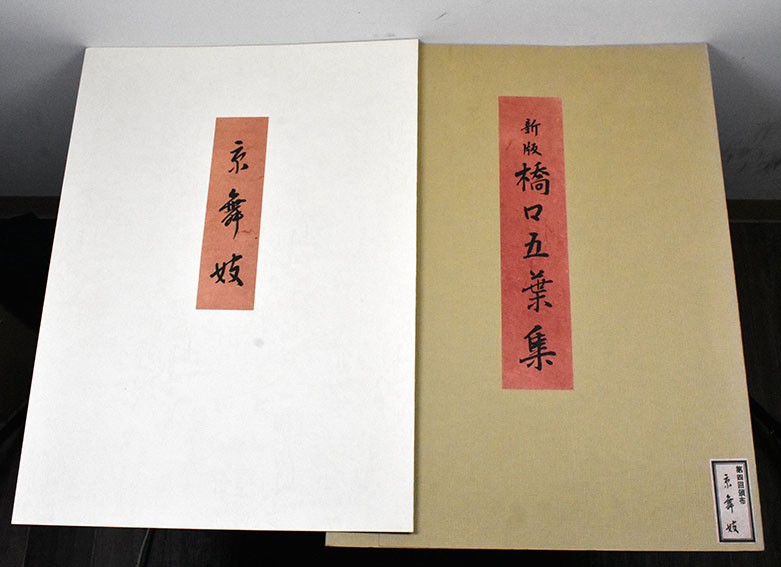 京舞妓
新版
橋口五葉集
第四回頒布
京舞妓